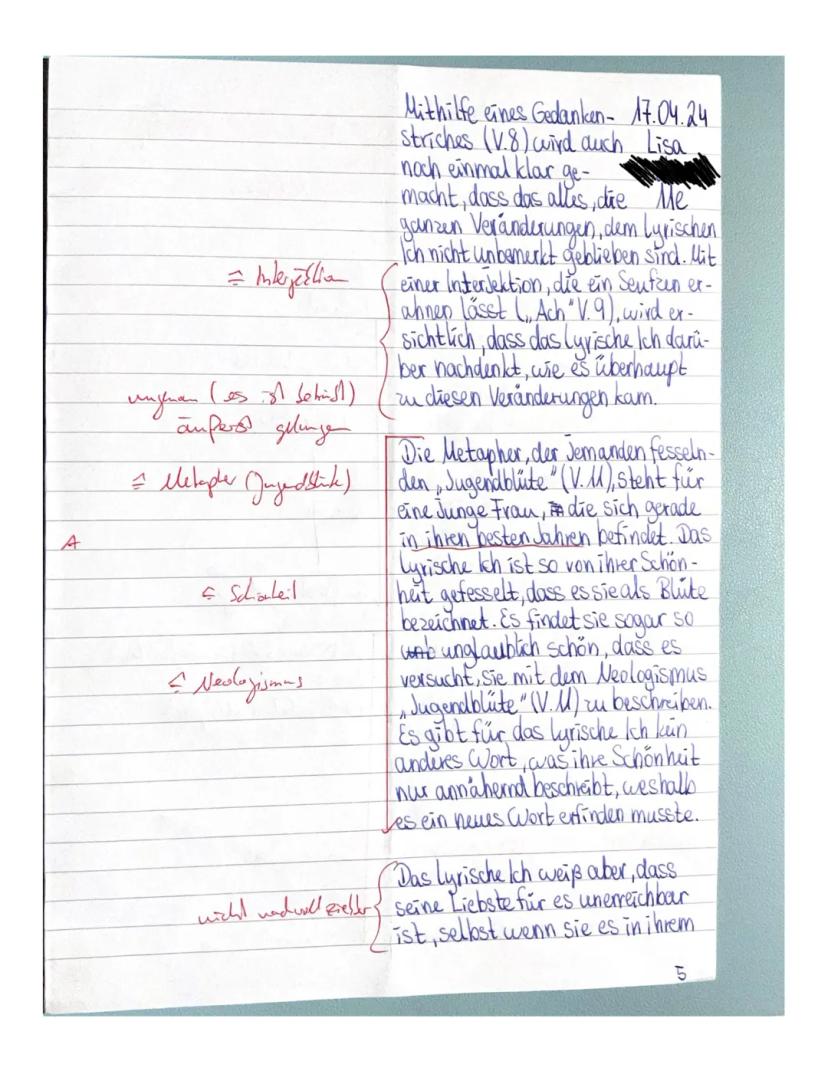 Mithilfe eines Gedanken- 17.04.24
striches (V.8) wird auch Lisa
noch einmal klar ge-
macht, dass das alles, die Me
ganzen Veränderungen, dem Lyrischen
Ich nicht unbemerkt geblieben sind. Mit
≙ Interjektion
einer Interjektion, die ein Seufzen er-
ahnen lässt („Ach" V. 9), wird er-
sichtlich, dass das Lyrische Ich darü-
ber nachdenkt, wie es überhaupt
zu diesen Veränderungen kam.
äußerst gelungen
Die Metapher, der Jemanden fesseln-
den „Jugendblüte" (V. 11), steht für
≙ Metapher (Jugendblüte)
eine Junge Frau, die sich gerade
A
in ihren besten Jahren befindet. Das
lyrische Ich ist so von ihrer Schön-
≙ Schönheit
heit gefesselt, dass es sie als Blüte
bezeichnet. Es findet sie sogar so
unglaublich schön, dass es
≙ Neologismus
versucht, sie mit dem Neologismus
„Jugendblüte" (V. 11) zu beschreiben.
Es gibt für das lyrische Ich kein
anderes Wort, was ihre Schönheit
nur annähernd beschreibt, weshalb
es ein neues Wort erfinden musste.
Das Lyrische Ich weiß aber, dass
nicht nachvollziehbar
seine Liebste für es unerreichbar
ist, selbst wenn sie es in ihrem
5